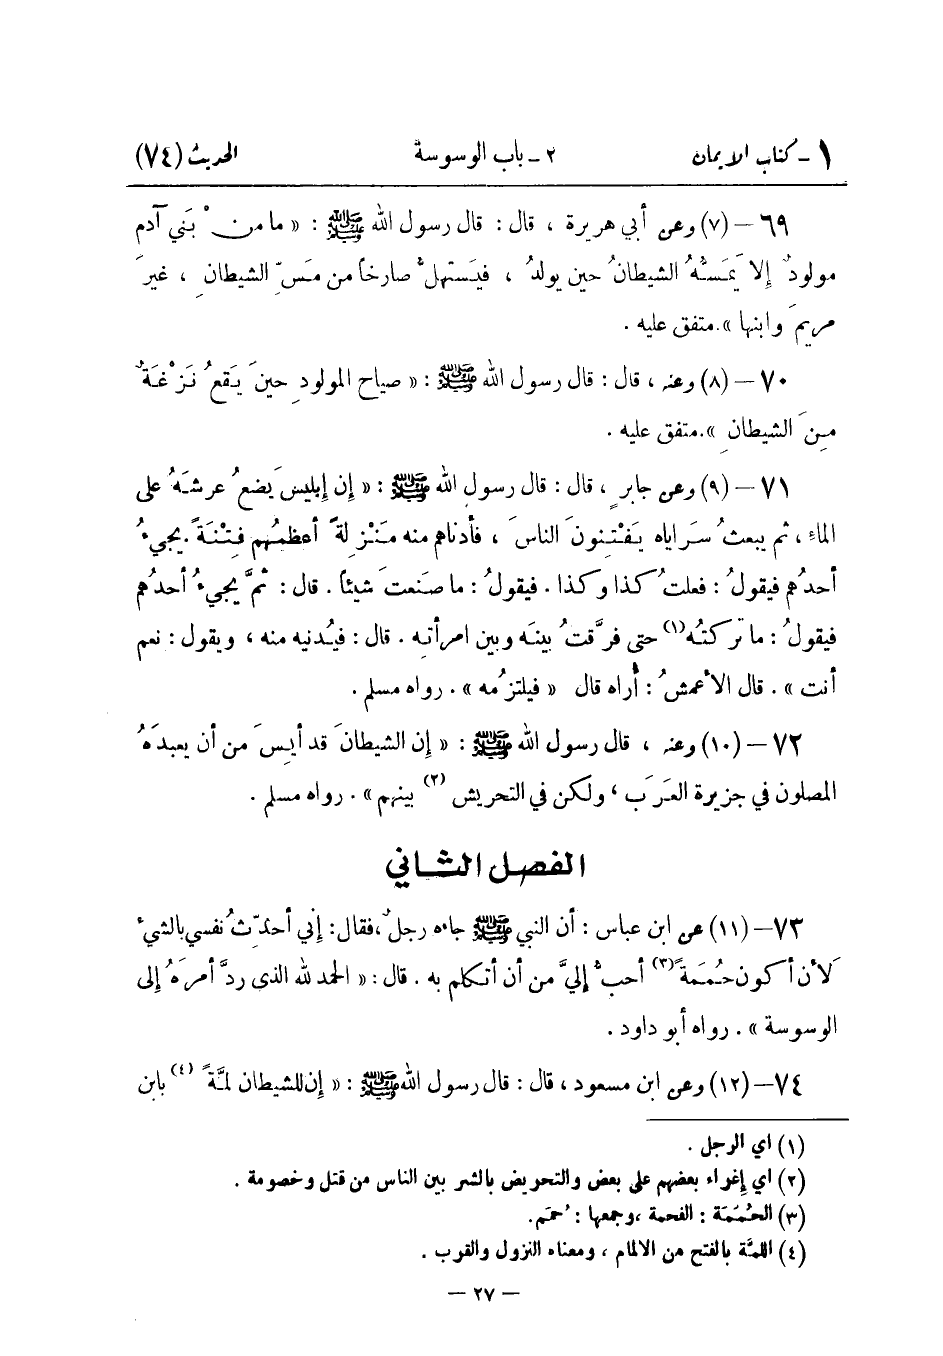 ١ - كتاب الايمان ٢ - باب الوسوسة الحديث (٧٤)
٦٩ – (٧) وعن أبي هريرة ، قال : قال رسول الله ﷺ : « ما من ْ بَني آدم
مولودٌ إلا يَمَسُّهُ الشيطانُ حين يولدُ ، فيَستهلُّ صارخاً من مَسِّ الشيطانِ ، غيرَ
مريمَ وابنها ». متفق عليه .
٧٠ – (٨) وعنه ، قال : قال رسول الله ﷺ : « صياح المولودِ حينَ يَقعُ نَزْغَةٌ
مِنَ الشيطانِ ». متفق عليه .
٧١ – (٩) وعن جابرٍ ، قال : قال رسول الله ﷺ : « إن إبليسَ يَضعُ عرشَهُ على
الماءِ ، ثم يبعثُ سَراياه يَفْتِنونَ الناسَ ، فأدناهم منه مَنْزِلةً أعظمُهم فِتْنَةً . يجيءُ
أحدُهم فيقولُ : فعلتُ كذا وكذا . فيقولُ : ما صَنعتَ شيئاً . قال : ثمَّ يجيءُ أحدُهم
فيقولُ : ما تركتُه (١) حتى فرَّقتُ بينَه وبين امرأته . قال : فيُدنيه منه ، ويقول : نعم
أنت » . قال الأعمشُ : أُراه قال « فيلتزمُه » . رواه مسلم .
٧٢ – (١٠) وعنه ، قال رسول الله ﷺ : « إن الشيطانَ قد أيسَ من أن يعبدَهُ
المصلون في جزيرة العَرَب ، ولكن في التحريش (٢) بينهم » . رواه مسلم .
الفصل الثاني
٧٣ – (١١) عن ابن عباس : أن النبي ﷺ جاءه رجلٌ ، فقال : إني أحدّثُ نفسي بالشيءِ
لَأن أكون حُمَمَةً (٣) أحبُّ إليَّ من أن أتكلم به . قال : « الحمد لله الذى ردَّ أمرَهُ إلى
الوسوسة » . رواه أبو داود .
٧٤ – (١٢) وعن ابن مسعود ، قال : قال رسول الله ﷺ : « إن للشيطان لمَّةً (٤) بابن
(١) اي الرجل .
(٢) اي إغراء بعضهم على بعض والتحريض بالشر بين الناس من قتل وخصومة .
(٣) الحُمَمَة : الفحمة ، وجمعها : حُمَم .
(٤) اللمَّة بالفتح من الالمام ، ومعناه النزول والقرب .
— ٢٧ —